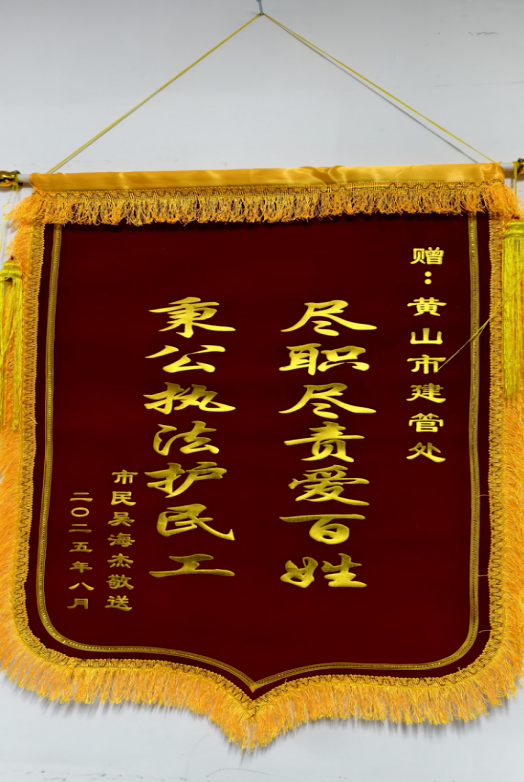 赠：黄山市建管处
尽职尽责爱百姓
秉公执法护民工
市民吴海杰敬送
二〇二五年八月